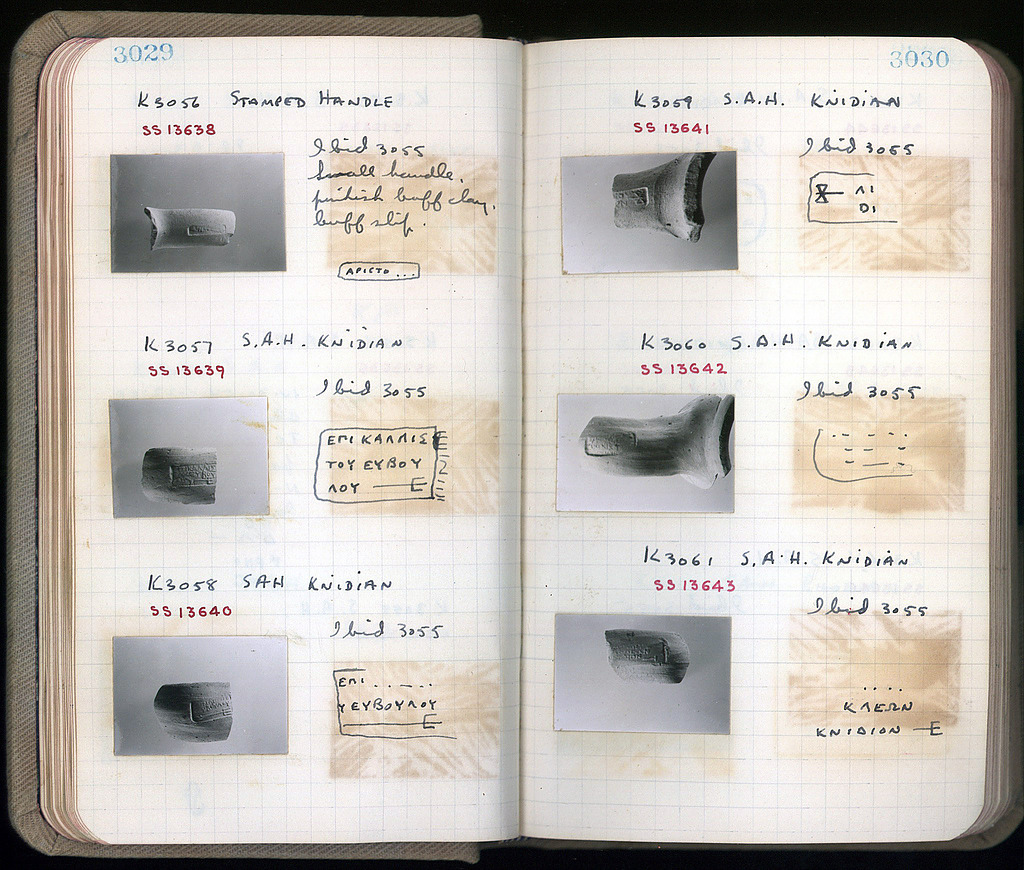 3029
K 3056 STAMPED HANDLE
SS 13638
Ibid 3055
Small handle.
pinkish buff clay.
buff slip.
ΑΡΙCΤΟ ...
K 3057 S.A.H. KNIDIAN
SS 13639
Ibid 3055
ΕΠΙ ΚΑΛΛΙΣ
ΤΟΥ ΕΥΒΟΥ
ΛΟΥ
K 3058 SAH KNIDIAN
SS 13640
Ibid 3055
ΕΠΙ . . . . .
Υ ΕΥΒΟΥΛΟΥ
3030
K 3059 S.A.H. KNIDIAN
SS 13641
Ibid 3055
ΛΙ
DI
K 3060 S.A.H. KNIDIAN
SS 13642
Ibid 3055
K 3061 S.A.H. KNIDIAN
SS 13643
Ibid 3055
....
ΚΛΕΩΝ
ΚΝΙΔΙΟΝ